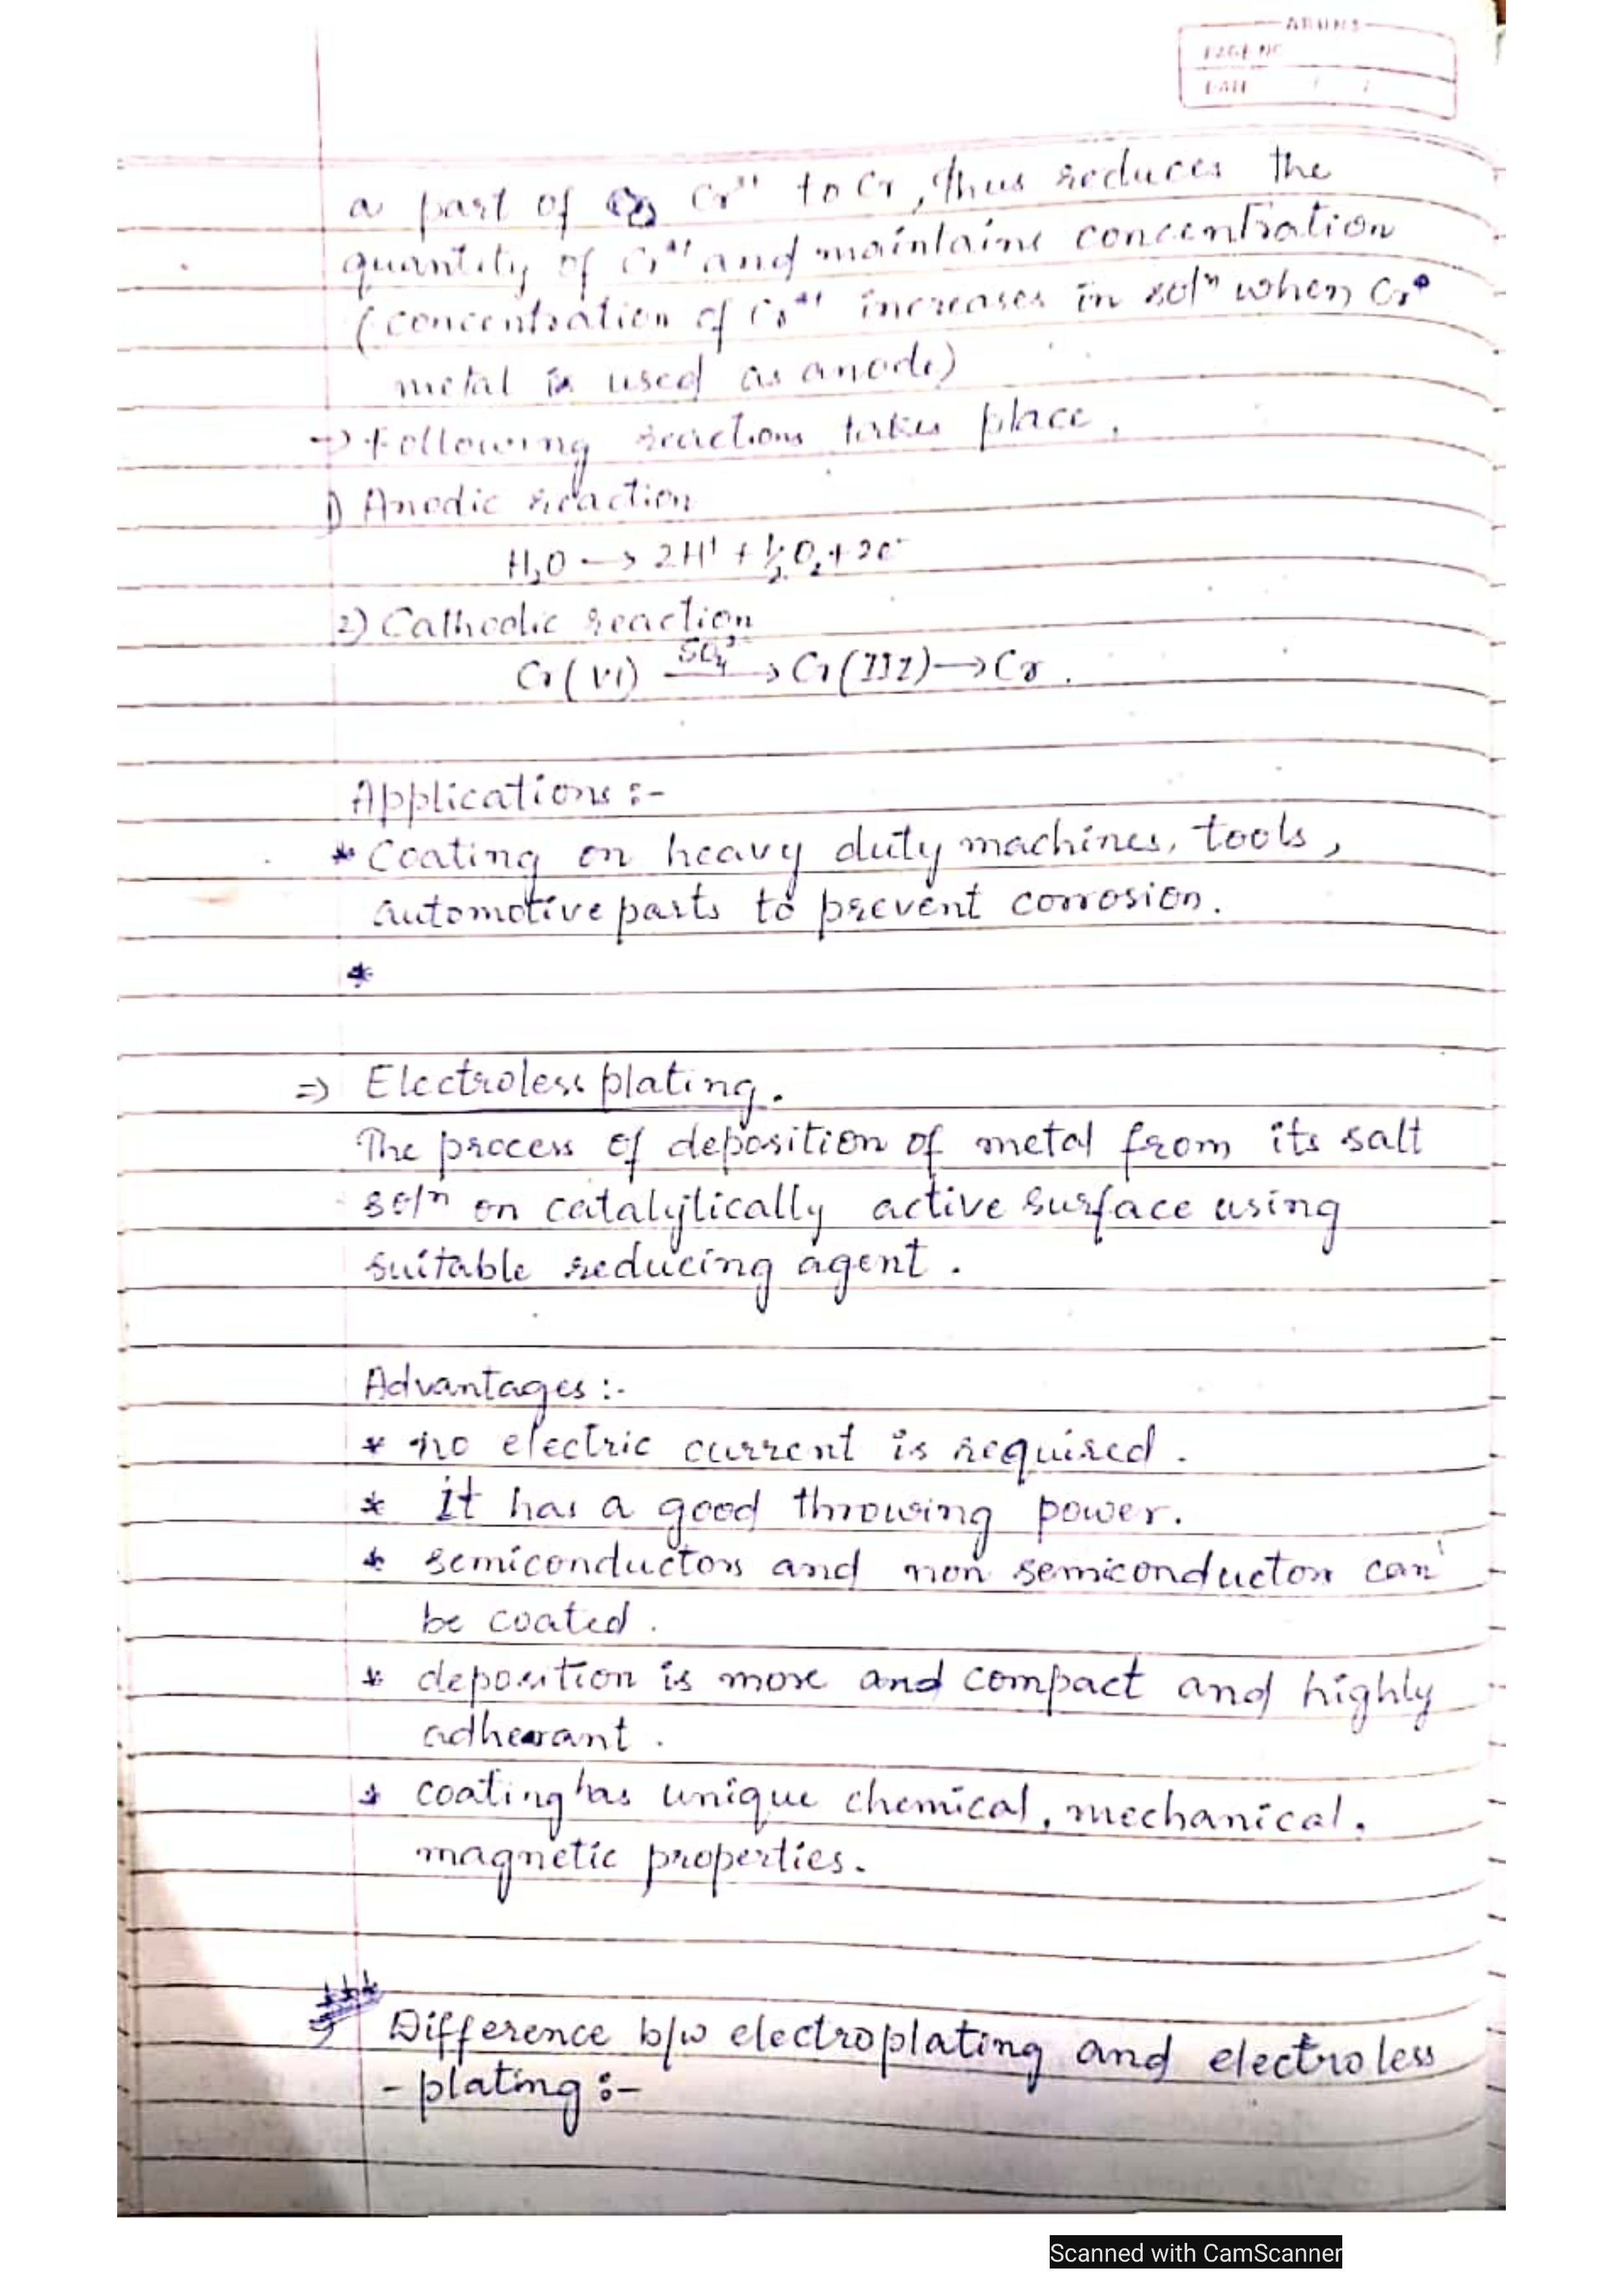 ARUNS
PAGE NO
DATE / /
a part of Cr to Cr, thus reduces the
quantity of Cr and maintains concentration
(concentration of Cr increases in solⁿ when Cr
metal is used as anode)
→ Following reactions takes place.
1) Anodic reaction
H₂O → 2H⁺ + 1/2 O₂ + 2e⁻
2) Cathodic reaction
Cr(VI) SO₄²⁻→ Cr(III) → Cr.
Applications :-
* Coating on heavy duty machines, tools,
automotive parts to prevent corrosion.
*
⇒ Electroless plating.
The process of deposition of metal from its salt
solⁿ on catalytically active surface using
suitable reducing agent.
Advantages :-
* no electric current is required.
* It has a good throwing power.
* semiconductors and non semiconductors can
be coated.
* deposition is more and compact and highly
adherant.
* coating has unique chemical, mechanical,
magnetic properties.
Difference b/w electroplating and electroless
- plating :-
Scanned with CamScanner